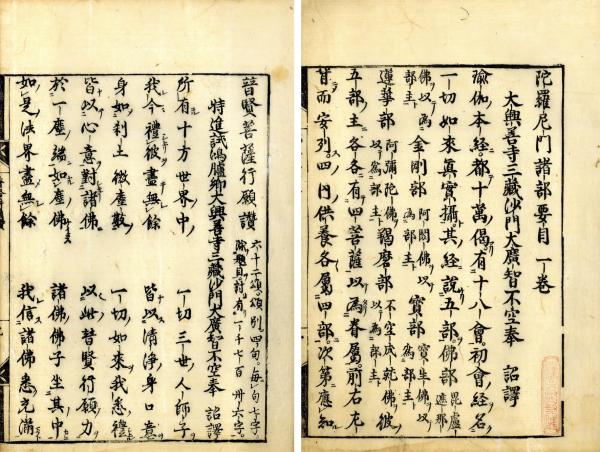 陀羅尼門諸部要目一卷
大興善寺三藏沙門大廣智不空奉 詔譯
瑜伽本經都十萬偈有十八會初會經名
一切如來真實攝其經說五部佛部毘盧遮那
佛以為部主金剛部阿閦佛以為部主寶部寶生佛以為部主
蓮華部阿彌陀佛以為部主羯磨部不空成就佛以為部主彼
五部主各各有四菩薩以為眷屬前右左
背而安列四内供養各屬四部次第應知
普賢菩薩行願讚 六十二頌頌別四句每句七字除題目計有一千七百卅六字
特進試鴻臚卿大興善寺三藏沙門大廣智不空奉 詔譯
所有十方世界中 一切三世人師子
我今禮彼盡無餘 皆以清淨身口意
身如刹土微塵數 一切如來我悉禮
皆以心意對諸佛 以此普賢行願力
於一塵端如塵佛 諸佛佛子坐其中
如是法界盡無餘 我信諸佛悉充滿